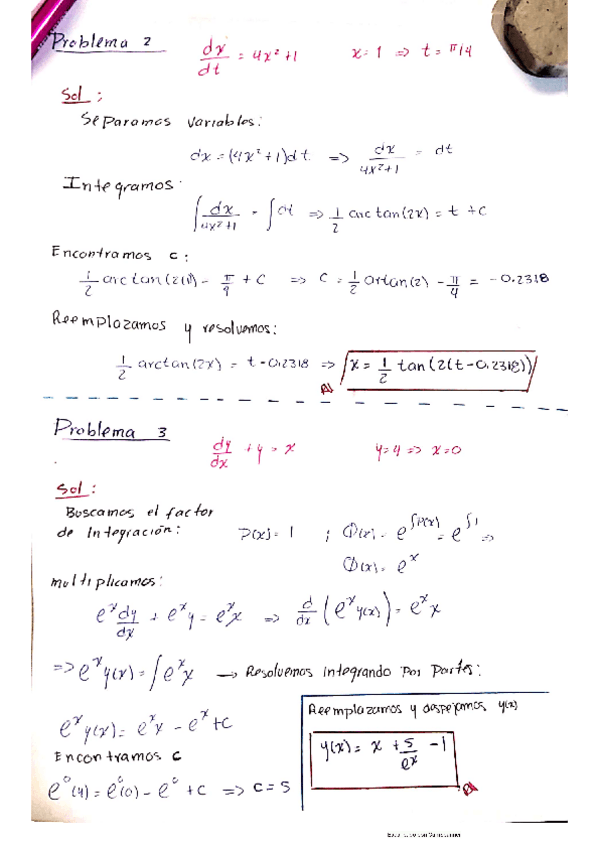 Problema 2 dx/dt = 4x²+1 x=1 => t=π/4
Sol:
Separamos variables:
dx=(4x²+1)dt. => dx/4x²+1 = dt
Integramos:
∫dx/4x²+1 = ∫dt => 1/2 arctan(2x) = t+C
Encontramos c:
1/2 arctan(2(1))- π/4 + C => C = 1/2 artan(2) - π/4 = -0.2318
Reemplazamos y resolvemos:
1/2 arctan(2x) = t-0.2318 => x = 1/2 tan(2(t-0.2318)) R/
Problema 3 dy/dx + y = x y=4 => x=0
Sol:
Buscamos el factor
de integración: P(x)=1 ; Φ(x)= e^∫P(x) = e^∫1 =>
Φ(x)= e^x
multiplicamos:
e^x dy/dx + e^x y = e^x x => d/dx (e^x y(x)) = e^x x
=> e^x y(x) = ∫e^x x → Resolvemos integrando por partes:
e^x y(x) = e^x x - e^x + C
Encontramos C
e^0 (4) = e^0 (0) - e^0 + C => C=5
Reemplazamos y despejamos y(x)
y(x) = x + 5/e^x - 1 R/